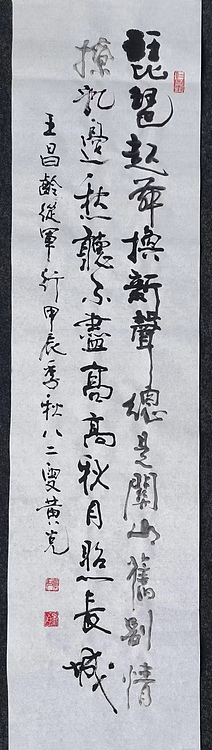 琵琶起舞換新聲總是關山舊別情
撩亂邊愁聽不盡高高秋月照長城
王昌齡從軍行甲辰季秋八二叟黃克